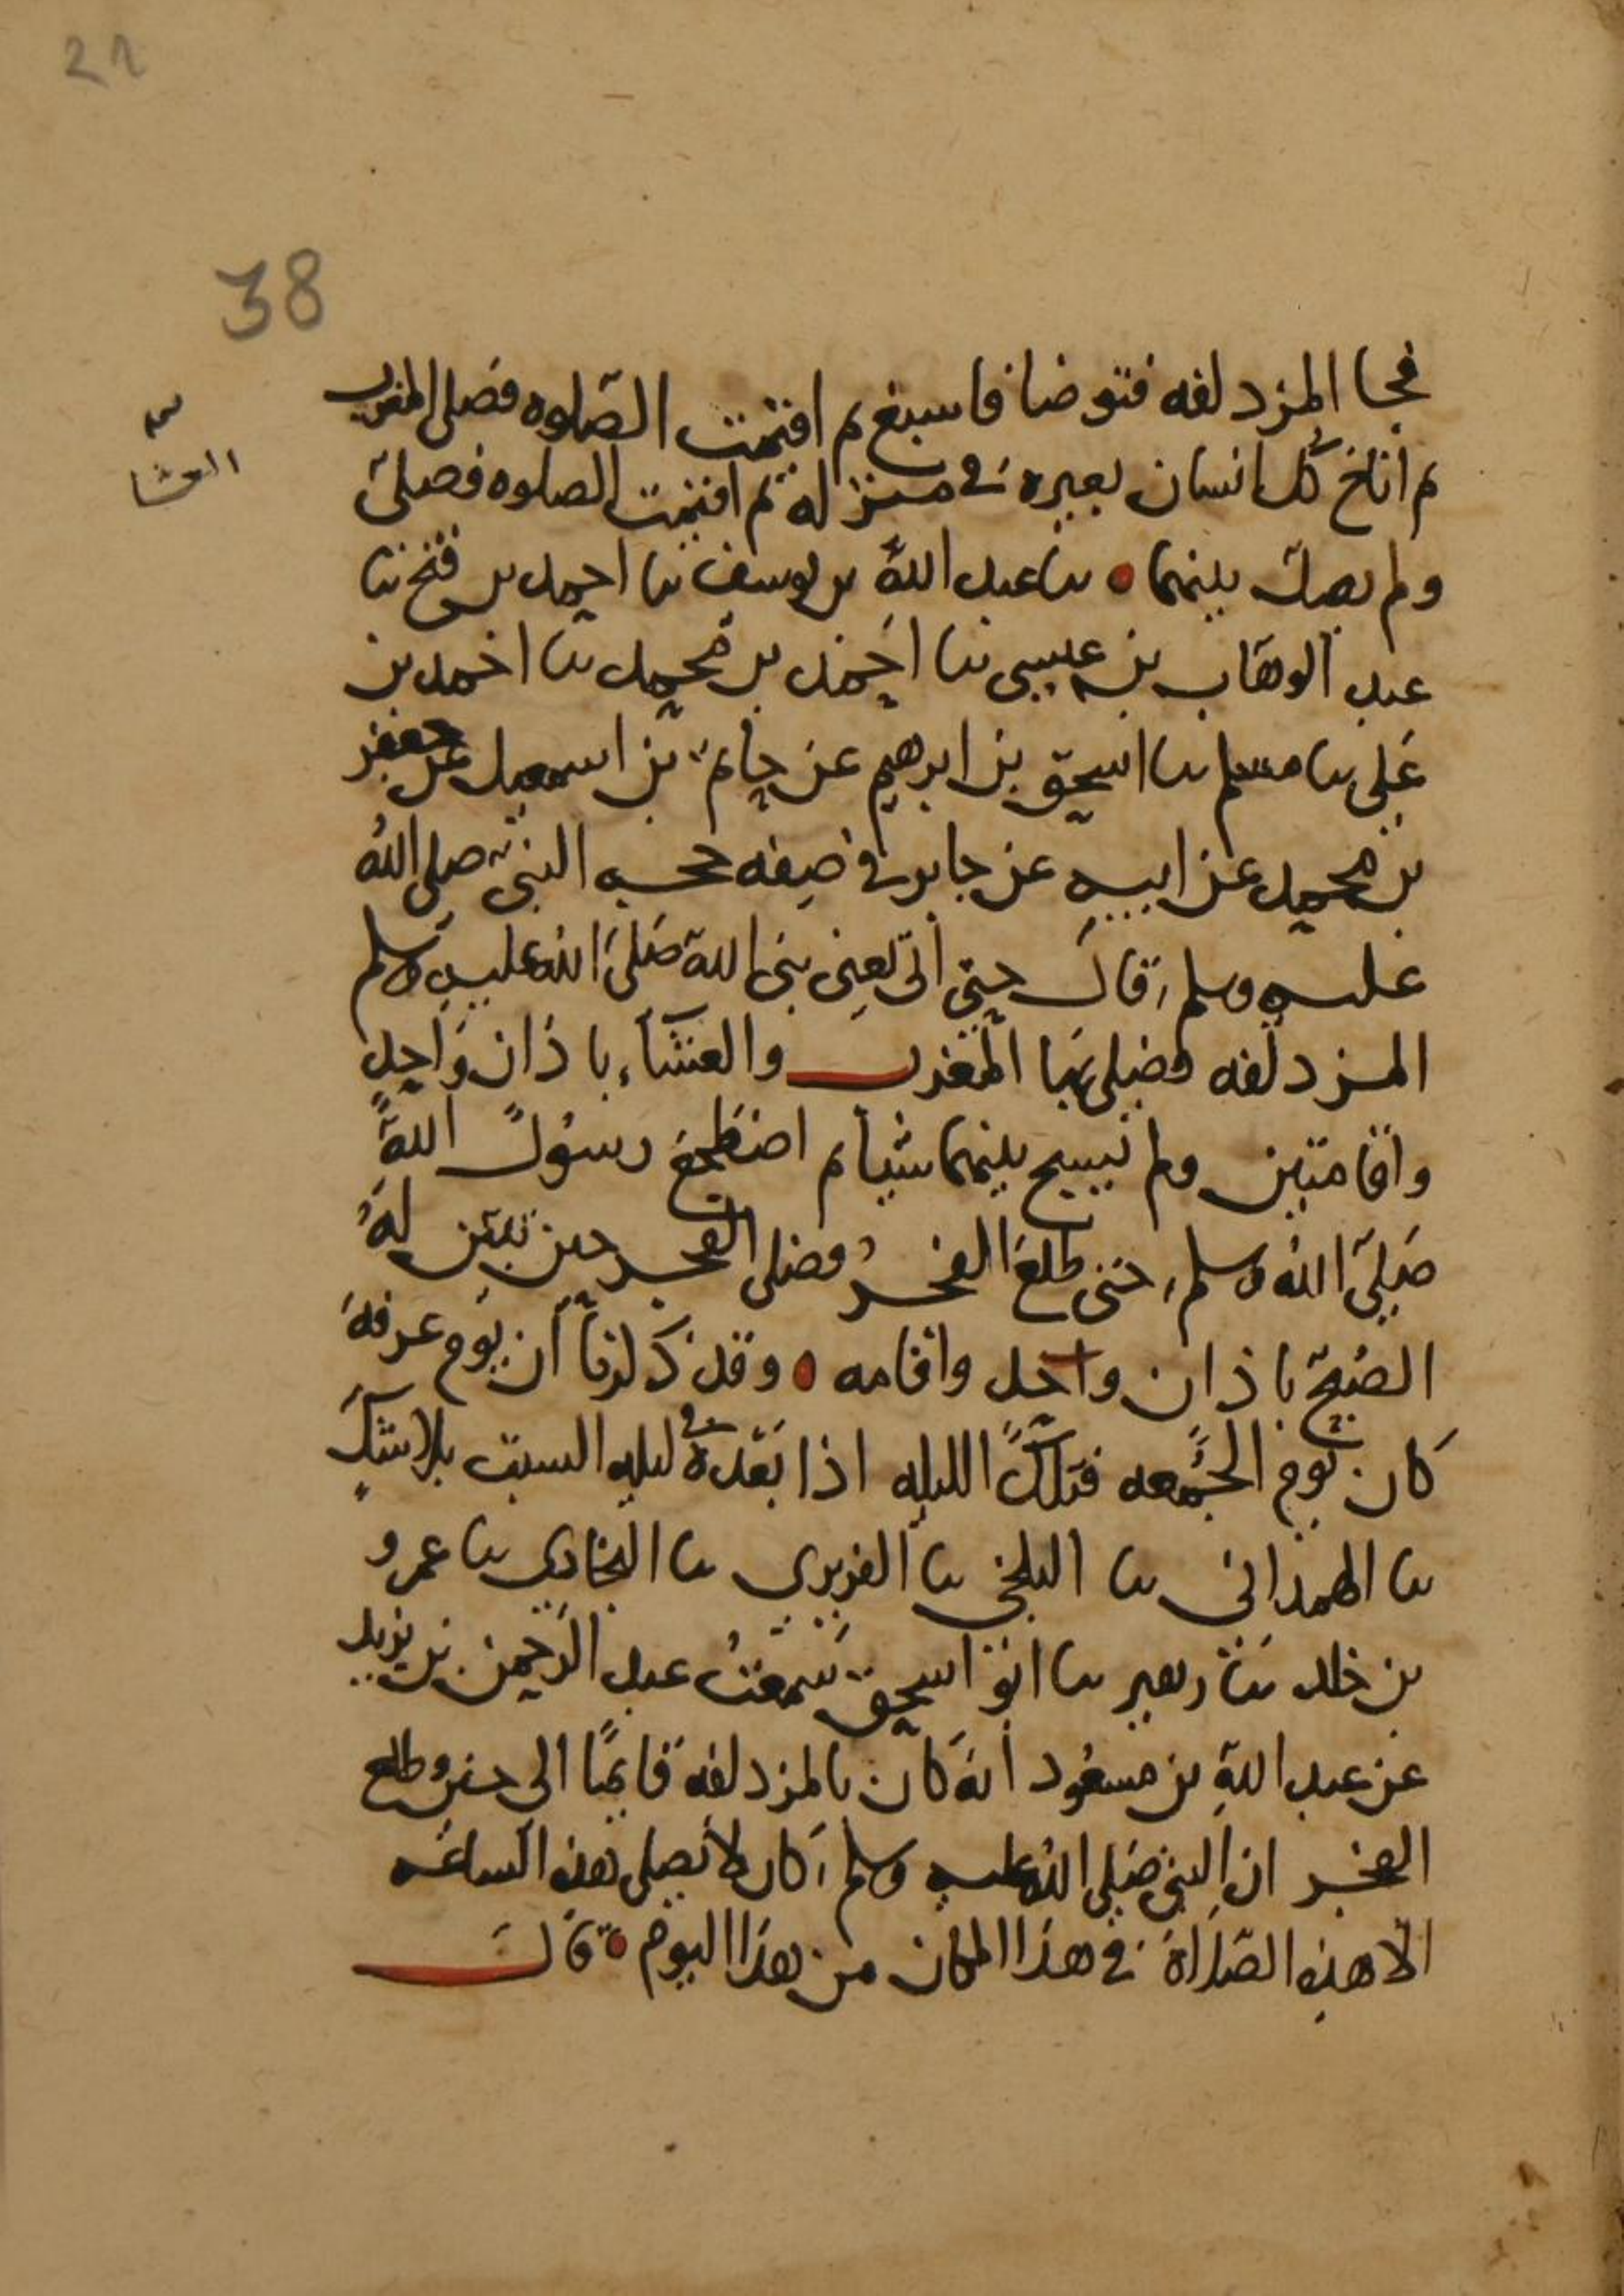 21
38
فجا المزدلفه فتوضا فاسبغ ثم اقيمت الصلوه فصلى المغرب
ثم اناخ كل انسان بعيره في منزله ثم اقيمت الصلوه فصلى
العشا
ولم يصل بينهما ٥ نا عبد الله بن يوسف نا احمد بن فتح نا
عبد الوهاب بن عيسى نا احمد بن محمد نا احمد بن
علي نا مسلم نا اسحق بن ابرهيم عن حاتم بن اسمعيل عن جعفر
بن محمد عن ابيه عن جابر في صفه حجه النبي صلى الله
عليه وسلم قال حتى اتى يعني نبي الله صلى الله عليه وسلم
المزدلفه فصلى بها المغرب والعشاء باذان واحد
واقامتين ولم يسبح بينهما شيا ثم اضطجع رسول الله
صلى الله وسلم حتى طلع الفجر فصلى الفجر حين تبين له
الصبح باذان واحد واقامه ٥ وقد ذكرنا ان يوم عرفه
كان يوم الجمعه فتلك الليله اذا بعده في ليله السبت بلا شك
نا الهمداني نا البلخي نا الفربري نا البخاري نا عمرو
بن خلد نا زهير نا ابو اسحق سمعت عبد الرحمن بن يزيد
عن عبد الله بن مسعود انه كان بالمزدلفه قايما الى حين طلع
الفجر ان النبي صلى الله عليه وسلم كان لا يصلي هذه الساعه
الا هذه الصلاة في هذا المكان من هذا اليوم ٥ قال